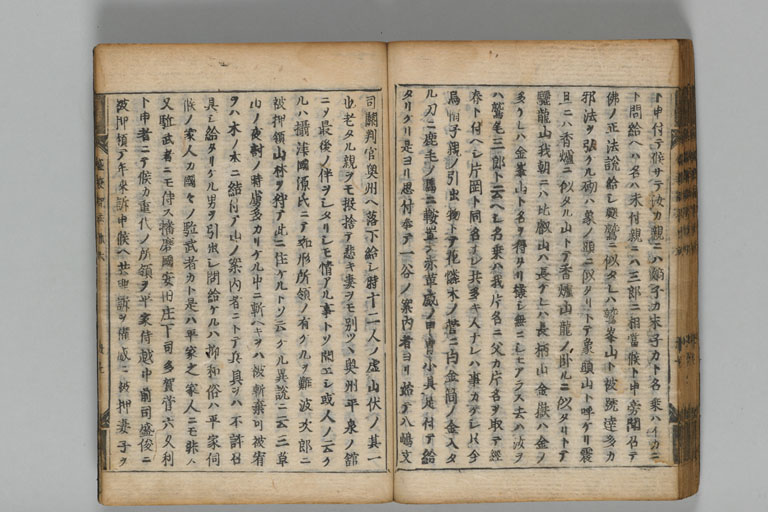 ト申付テ候サテ汝カ親ニハ嫡子カ末子カト名乗ハイカニ
ト問給ヘハ名ハ未付親ニハ三郎ニ相當候ト申旁聞召テ
佛ノ正法説給シ鷲ニ似タレハ鷲峯山ト被號達多カ
邪法ヲ弘タル砌ハ象ノ頭ニ似タリトテ象頭山ト呼ケリ震
旦ニハ香爐ニ似タル山トテ香爐山龍ノ臥ルニ似タリトテ
驪龍山我朝ニハ比叡山ハ長ケレハ長柄山金嶽ハ金ノ
多ケレハ金峯山ト名ヲ得タリ
ハ鷲尾三郎ト云ヘシ名乗ハ我片名ニ父カ片名ヲ取テ經
春ト付ヘシ片岡ト同名ナレ共多キ人ナレハ事カケシ只今
烏帽子親ノ引出物トテ花櫚木ノ管ニ白金筒ノ金入タ
ル刀ニ鹿毛ノ馬ニ鞍置テ赤革威ノ甲冑小具足付テ給
タリケリ是ヨリ思付奉テ一谷ノ案内者ヨリ始テ八嶋文
司關判官奥州ヘ落下給シ時十二人ノ虚山伏ノ其一
也老タル親ヲモ振捨テ悲キ妻ヲモ別ツヽ奥州平泉ノ館
ニソ最後ノ伴ヲシタリシモ情アル事トソ聞エシ或人ノ云ク
ルハ攝津國源氏ニテ和形所領ノ有ケルヲ難波次郎ニ
被押領山林ヲ狩テ此ニ住ケルトソ云ケル異説ニ云三草
山ノ夜討ノ時虜多カリケル中ニ斬ヘキヲハ被斬棄可被宥
ヲハ木ノ本ニ結付テ山ノ案内者ニトテ兵具ヲハ不許召
具シ給タリケル男ヲ引出シ問給ケルハ抑和俗ハ平家伺
候ノ家人カ國々ノ駈武者カト是ハ平家之家人ニモ非ハ
又駈武者ニモ侍ス播磨國安田庄下司多賀菅六久利
ト申者ニテ候カ重代ノ所領ヲ平家侍越中前司盛俊ニ
被押領テ年来訴申候ヘ共其訴ヲ權威ニ被押妻子ヲ